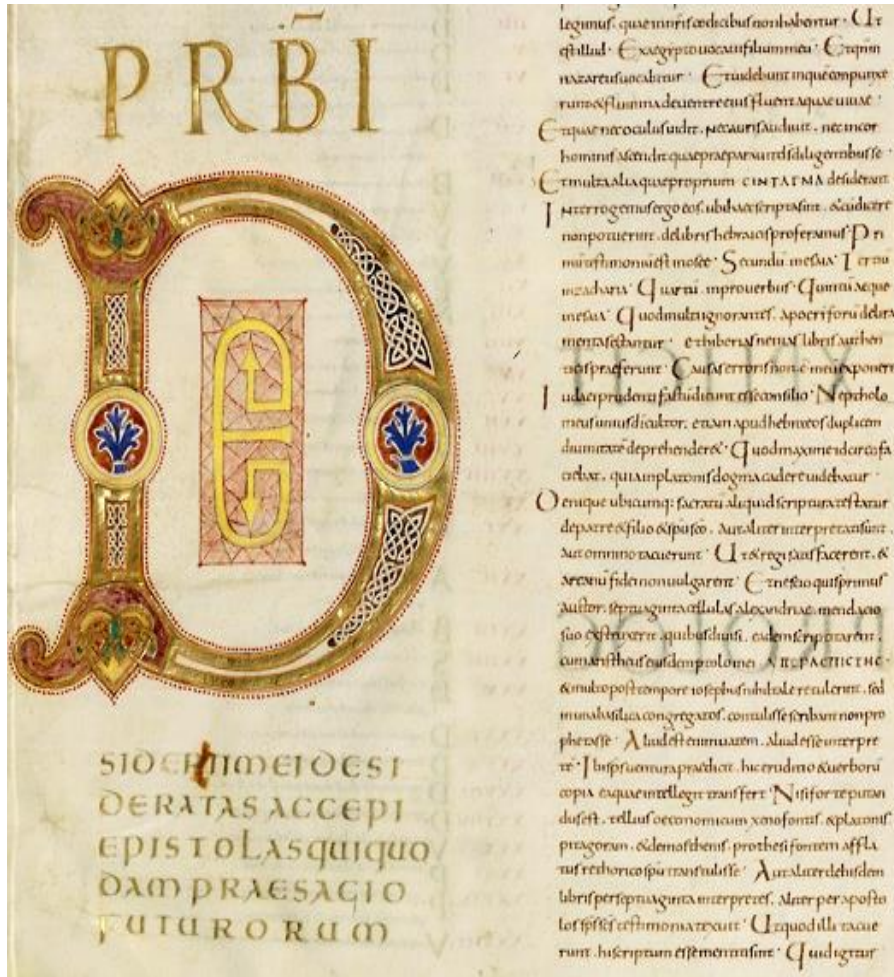 PRB̄I
DE
SIDERIIMEIDESI
DERATASACCEPI
EPISTOLASquiquo
DAMPRAESAGIO
FUTURORUM
legimus. quae innr̄is codicibus non habentur. Ut
est illud. Ex aegypto uocaui filium meū. Et qm̄
nazareus uocabitur. Et uidebunt inquē conpunxe
runt & flumina de uentre eius fluent aquae uiuae.
Et quae nec oculus uidit. nec auris audiuit. nec in cor
hominis ascendit quae praeparauit d̄s diligentibus se.
Et multa alia quae proprium CINTATMA desiderant
Interrogemus ergo eos. ubi haec scripta sint. & cū dicere
non potuerint. de libris hebraicis proferamus. Pri
mū testimoniū est in osee. Secundū in esaia. Tertiū
in zacharia. Quartū. in prouerbiis. Quintū aeque
in esaia. Quod multi ignorantes. apocriforū delira
menta sectantur. et hiberas nenias libris authen
ticis praeferunt. Causas erroris non ē meū exponere
Iudaei prudenti factū dicunt esse consilio. Ne ptholo
meus unius dī cultor. etiam apud hebraeos duplicem
diuinitatē deprehender&. Quod maxime idcirco fa
ciebat. quia in platonis dogma cadere uidebatur.
Denique ubicumq; sacratū aliquid scriptura testatur
de patre & filio & sp̄u sc̄o. Aut aliter interpretati sunt.
aut omnino tacuerunt. Ut & regi satisfacerent. &
arcanū fidei non uulgarent. Et nescio quis primus
auctor. septuaginta cellulas alexandriae mendacio
suo extruxerit. quibus diuisi. eadem scriptitarent.
cum aristheus eiusdem ptolomei ΑΠΕΡΑCΠΙCΤΗC.
& multo post tempore iosephus nihil tale retulerint. sed
in una basilica congregatos. contulisse scribant non pro
phetasse. Aliud est enim uatem. aliud esse interpre
tē. Ibi sp̄s uentura praedicit. hic eruditio & uerborū
copia ea quae intellegit transfert. Nisi forte putan
dus est. tellius oeconomicum xenofontis. & platonis
pitagoram. & demosthenis. prothesifontem affla
tus rethorico sp̄u transtulisse. Aut aliter de hisdem
libris per septuaginta interpretes. aliter per aposto
los sp̄s sc̄s testimonia texuit. Ut quod illi tacue
runt. hi scriptum esse mentiti sint. Quid igitur